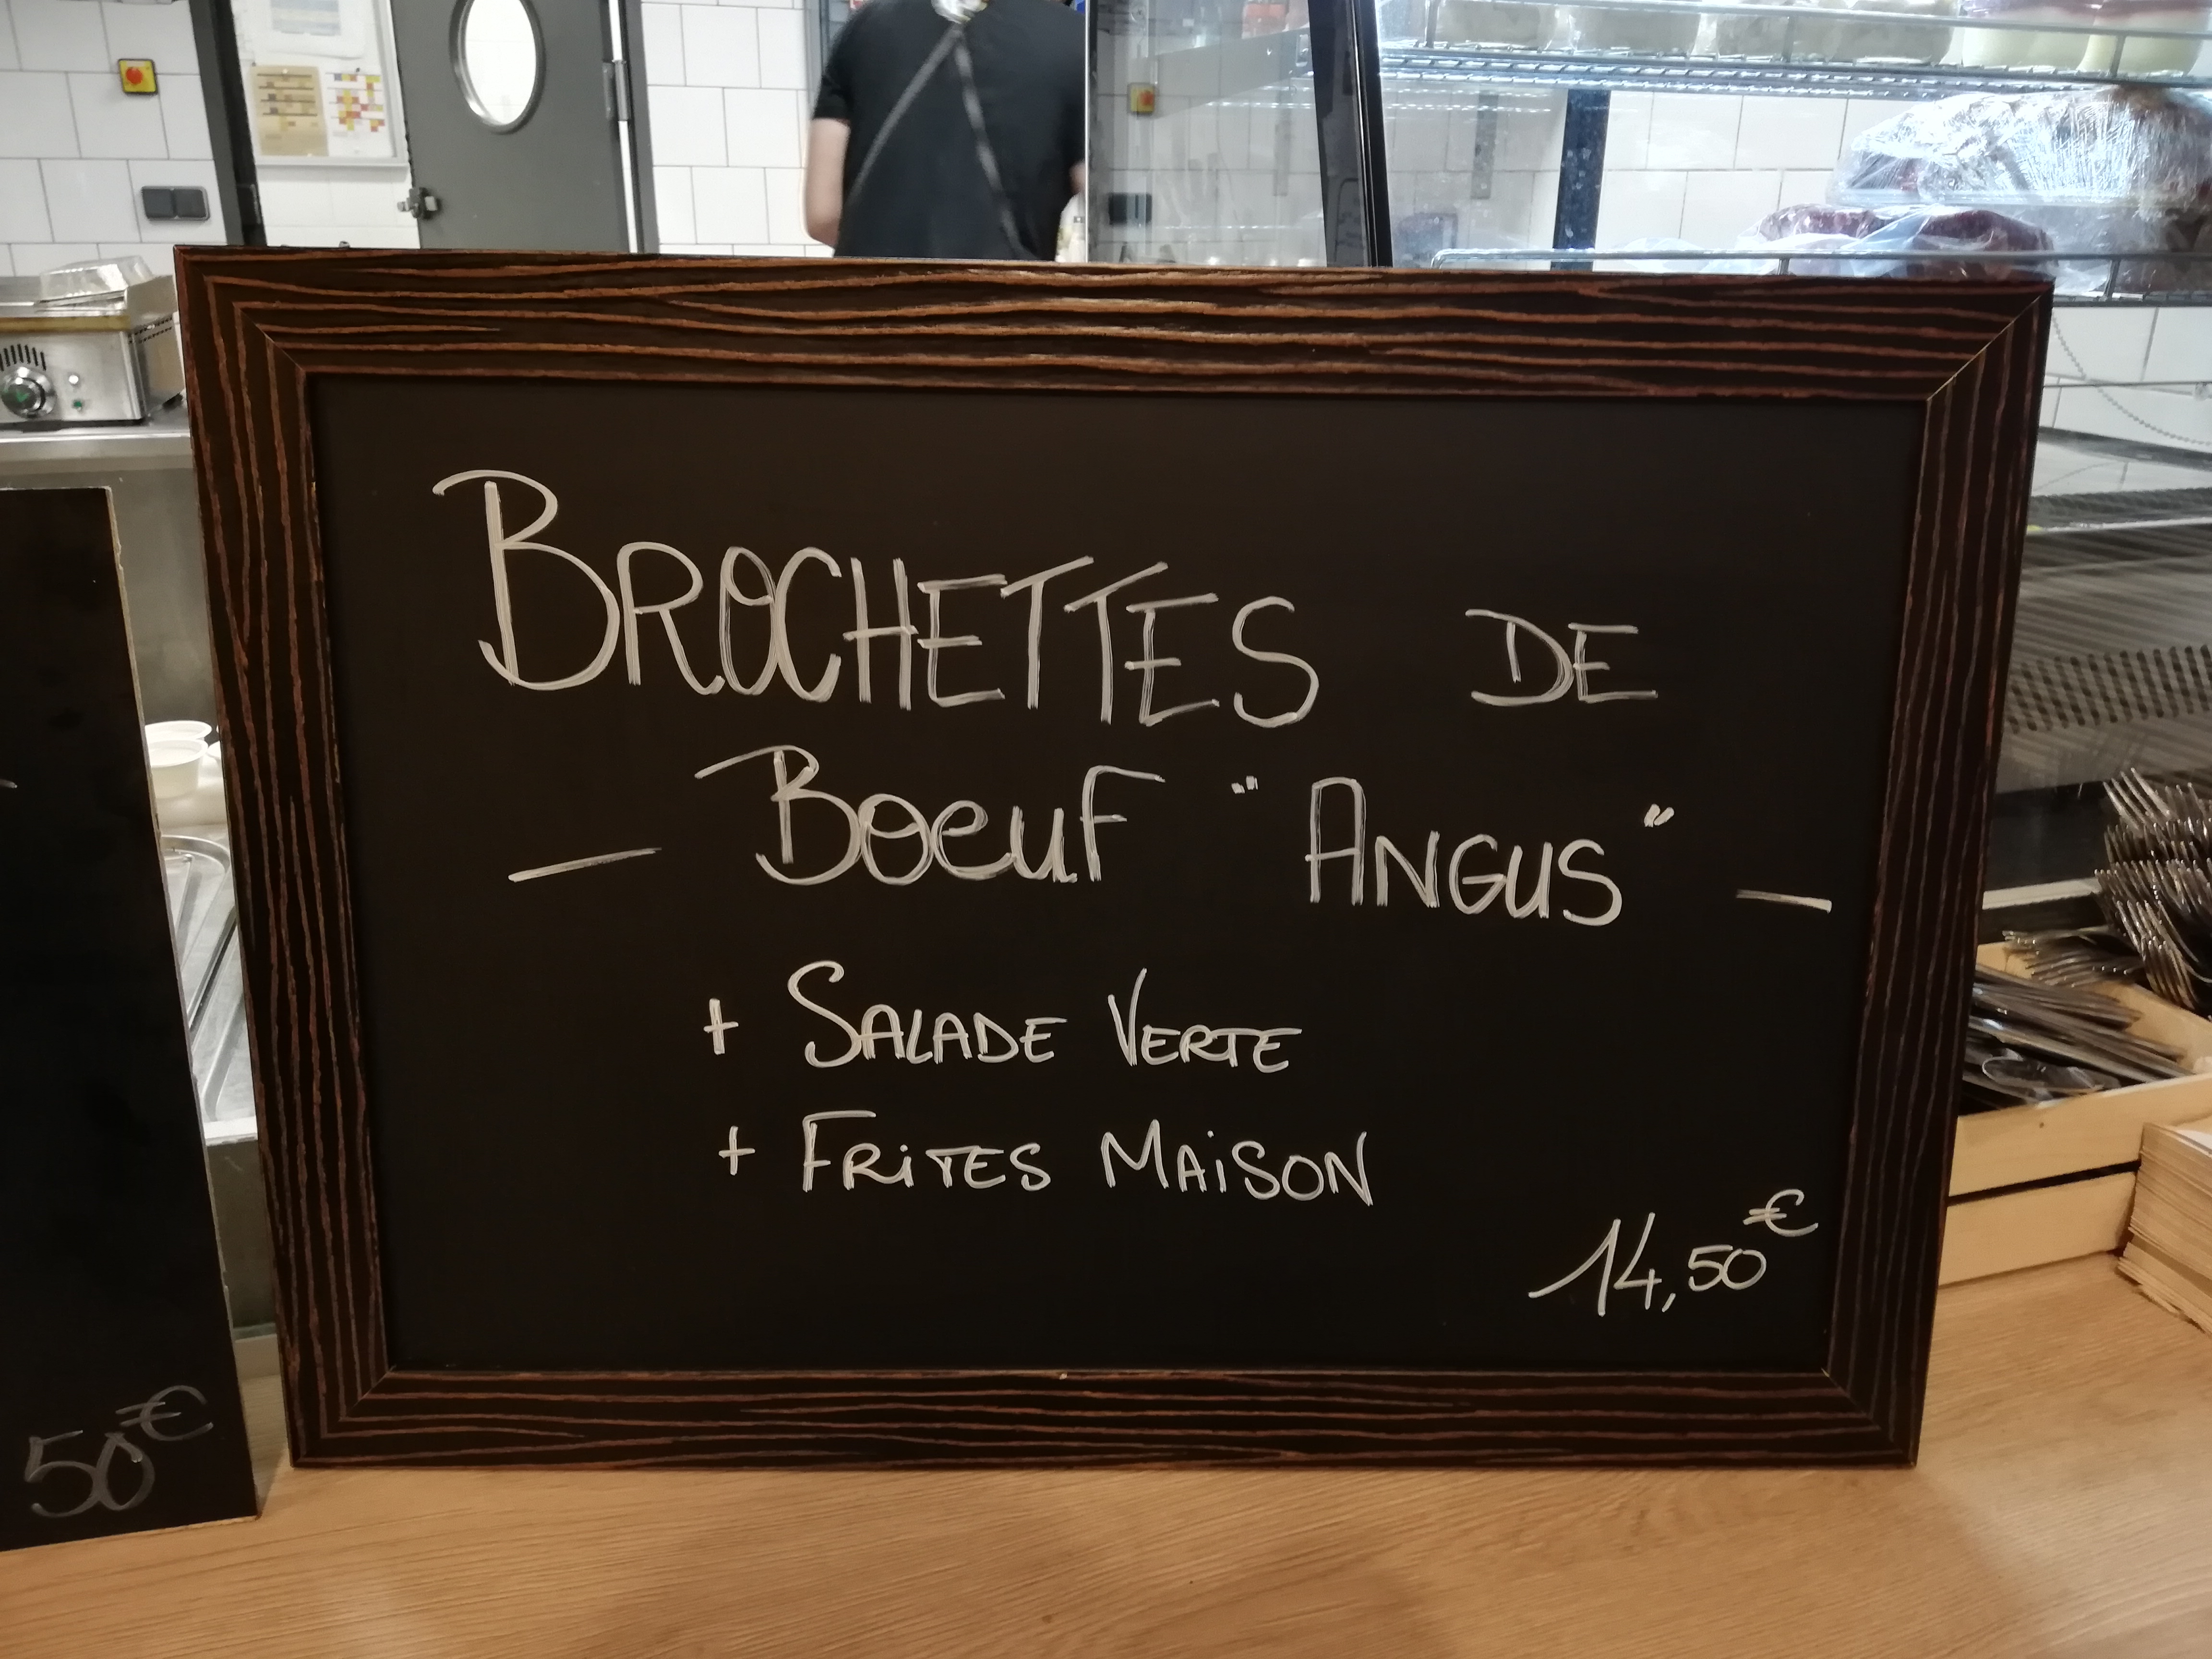 BROCHETTES DE
— BOEUF "ANGUS" —
+ SALADE VERTE
+ FRITES MAISON
14,50€
50€